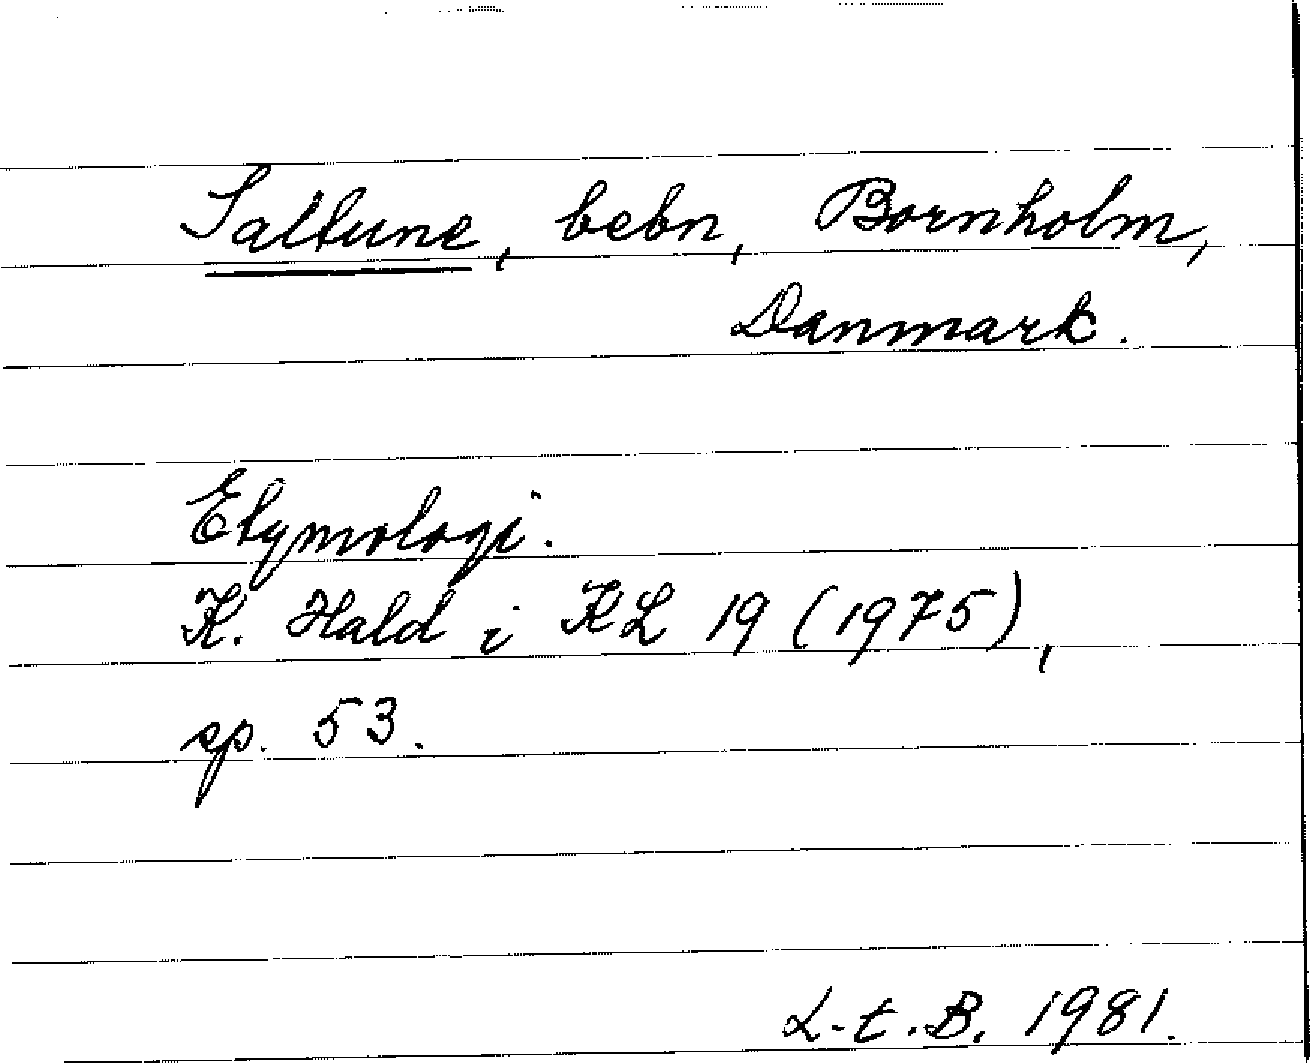 Saltune, bebn, Bornholm,
Danmark.
Etymologi.
K. Hald i KL 19 (1975),
sp. 53.
L.t.B. 1981.